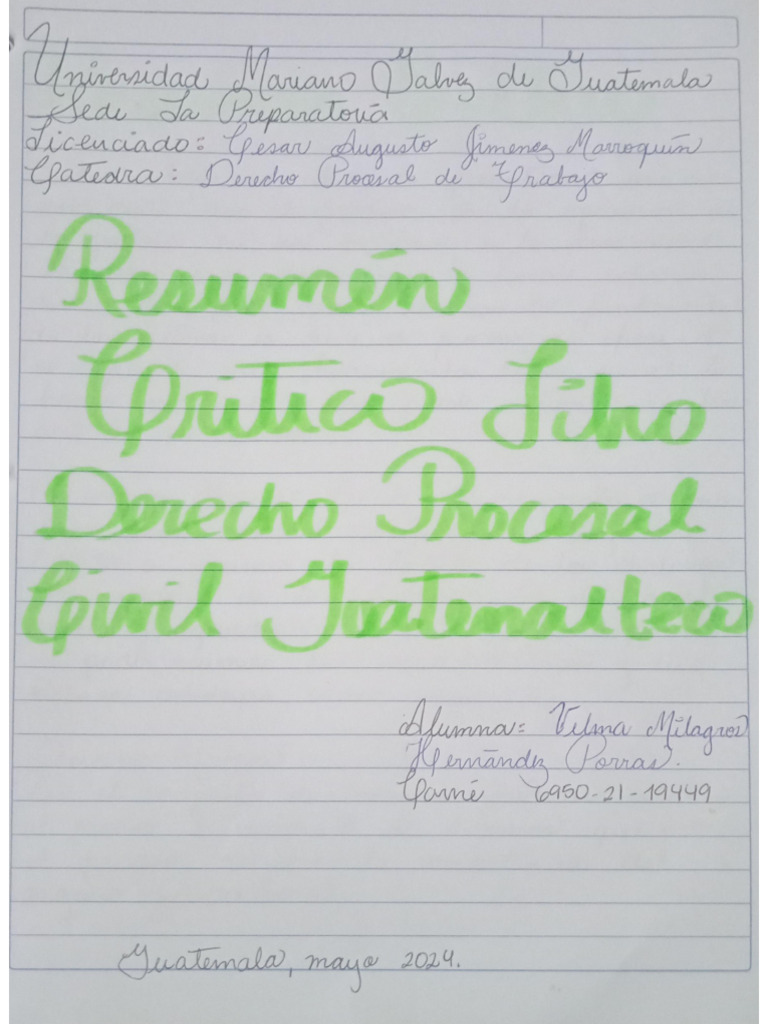 Universidad Mariano Galvez de Guatemala
Sede La Preparatoria
Licenciado: Cesar Augusto Jimenez Marroquín
Catedra: Derecho Procesal de Trabajo
Resumén
Crítico Libro
Derecho Procesal
Civil Guatemalteco
Alumna: Vilma Milagros
Hernández Porras.
Carné 6950-21-19449
Guatemala, mayo 2024.